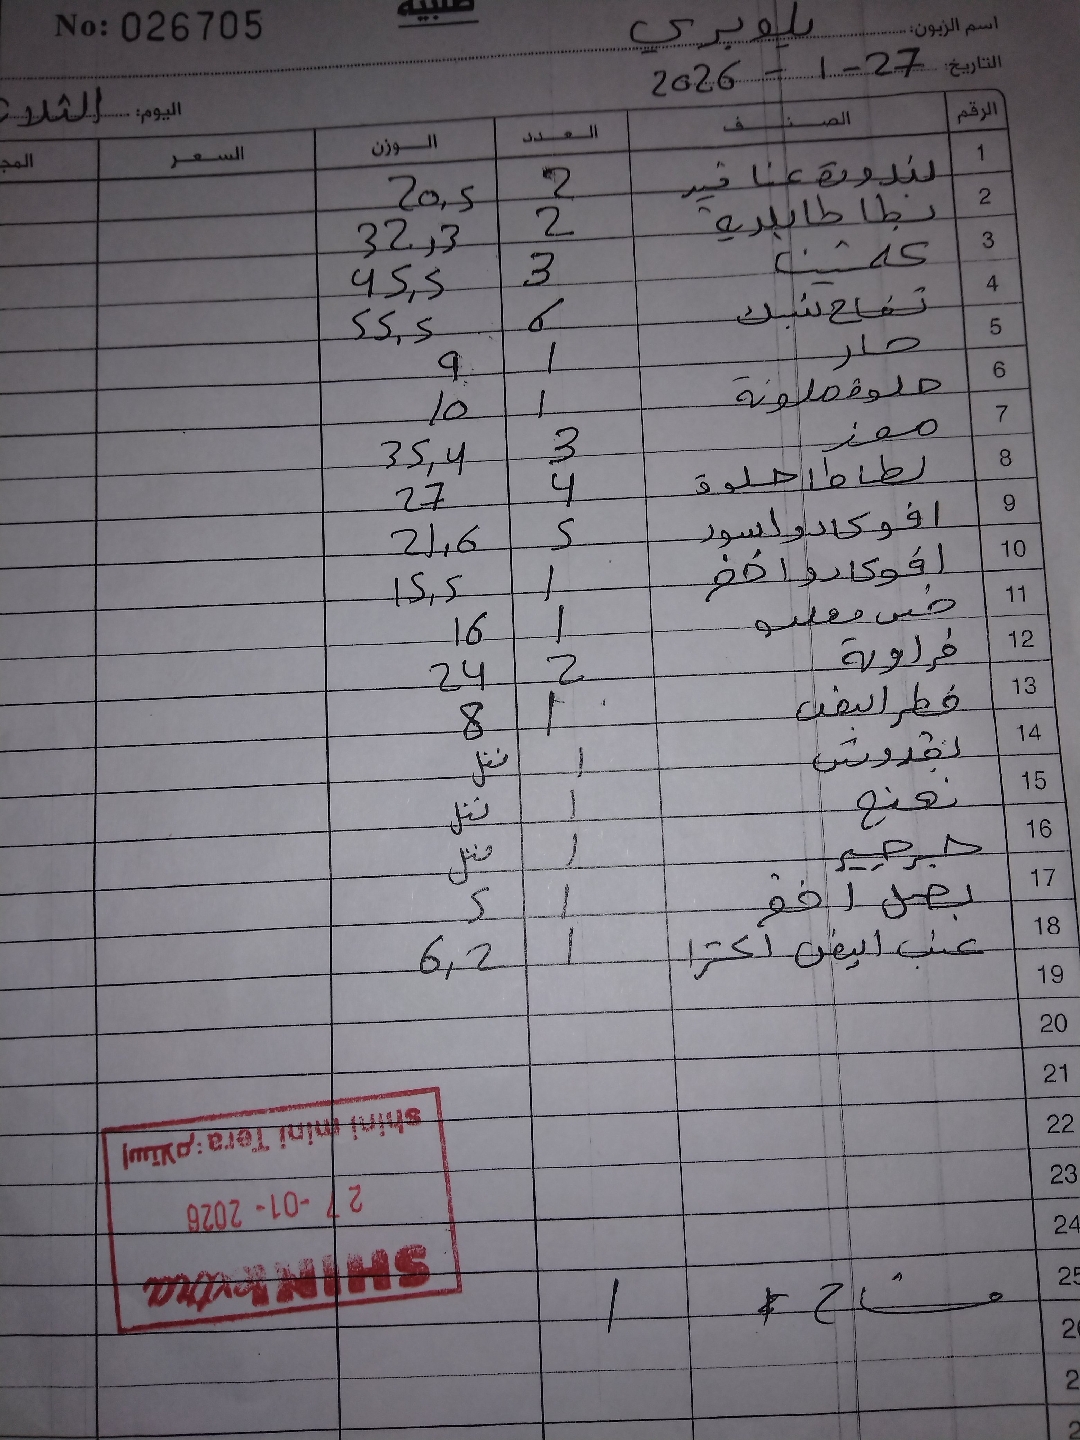 طلبية
No: 026705
اسم الزبون: بلوبري
التاريخ: 27-1-2026
اليوم: الثلاث
الرقم الصنف العدد الوزن السعر المج
1 بندورة عناقيد 2 20,5
2 بطاطا بلدية 2 32,3
3 كلمنتينا 3 45,5
4 تفاح شبك 6 55,5
5 حار 1 9
6 حلوة ملونة 1 10
7 موز 3 35,4
8 بطاطا حلوة 4 27
9 افوكادو اسود 5 21,6
10 افوكادو اخضر 1 15,5
11 خس 1 16
12 فراولة 2 24
13 فطر ابيض 1 8
14 بقدونس 1 شتل
15 نعنع 1 شتل
16 جرجير 1 شتل
17 بصل اخضر 1 5
18 عنب ابيض اكسترا 1 6,2
19
20
21
22
23
24
25
1
استلام: shini mini Tera
27-01-2026
SHINI extra